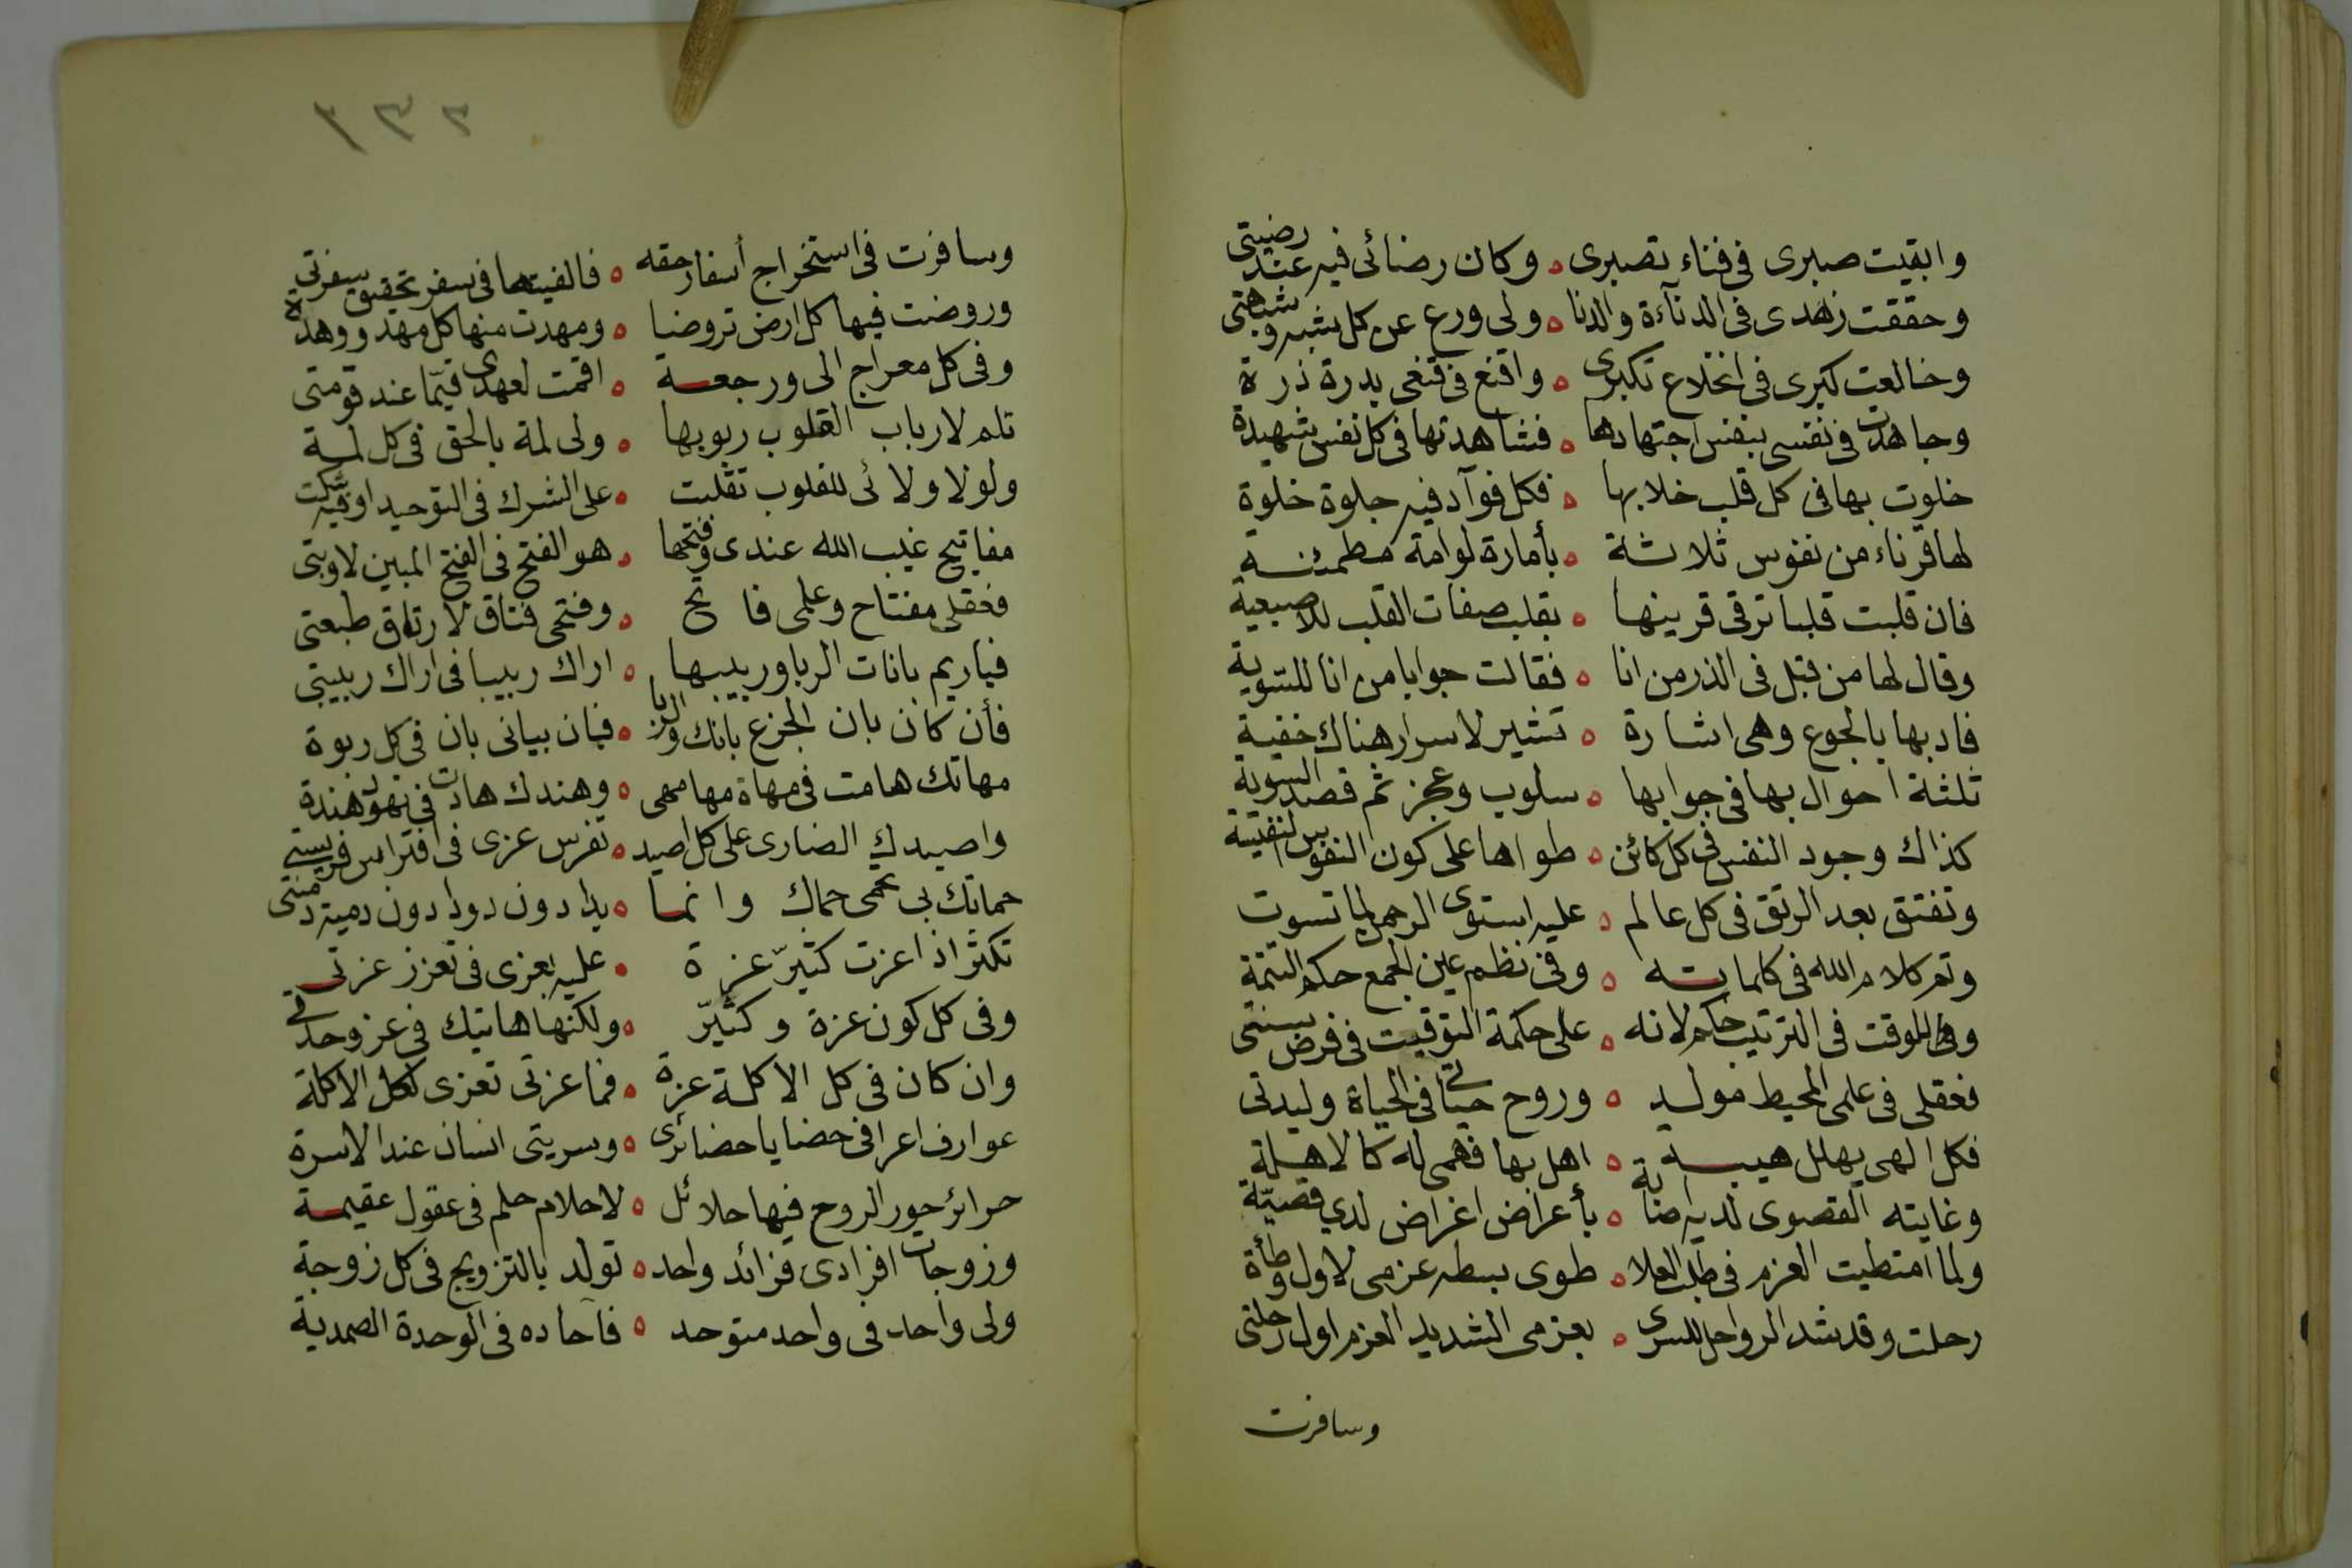 وابقيت صبرى فى فناء تصبرى ه وكان رضائى فيه عند رضيتى
وحققت زهدى فى الدناءة والدنا ه ولى ورع عن كل شبه وشبهتى
وخالعت كبرى فى انخلاع تكبرى ه واقنع فى قنعى بدرة ذرة
وجاهدت فى نفسى بنفس اجتهادها ه فشاهدتها فى كل نفس شهيدة
خلوت بها فى كل قلب خلا بها ه فكل فوآد فيه جلوة خلوة
لها قرناء من نفوس ثلاثة ه بأمارة لوامة مطمئنة
فان قلبت قلبا ترقى قرينها ه بقلب صفات القلب للاصبعية
وقال لها من قبل فى الذر من انا ه فقالت جوابا من انا للسوية
فادبها بالجوع وهى اشارة ه تشير لاسرار هناك خفية
ثلثة احوال بها فى جوابها ه سلوب وعجز ثم قصد السوية
كذاك وجود النفس فى كل كائن ه طواها على كون النفوس النفيسة
وتفتق بعد الرتق فى كل عالم ه عليه استوى الرحمن لما تسوت
وتم كلام الله فى كلماته ه وفى نظم عين الجمع حكم التتمة
وفى الموقت فى الترتيب حكم لانه ه على حكمة التوقيت فى فرض سنتى
فعقلى فى علمى المحيط مولد ه وروح حياتى فى الحياة وليدتى
فكل الهى يهلل هيبة ه اهل بها فهمى له كالاهلة
وغايته القصوى لديه اصابة ه بأعراض اغراض لدي قصية
ولما امتطيت العزم فى طلب العلا ه طوى بسطه عزمى لاول وطأة
رحلت وقد شد الرواحل للسرى ه بعزمى الشديد العزم اول رحلتى
وسافرت
١٣٢
وسافرت فى استخراج أسفار حقه ه فالفيتها فى سفر تحقيق سفرتي
وروضت فيها كل ارض تروضا ه ومهدت منها كل مهد ووهدة
وفى كل معراج الى ورجعة ه اقمت لعهدى قيّما عند قومتى
تلم لارباب القلوب ربوبها ه ولى لمة بالحق فى كل لمة
ولولا ولائى للقلوب تقلبت ه على الشرك فى التوحيد او فيه شكت
مفاتيح غيب الله عندى وفتحها ه هو الفتح فى الفتح المبين لاوبتى
فعقلى مفتاح وعلمى فاتح ه وفتحى فتاق لارتاق طبعتى
فياريم بانات الربا وربيبها ه اراك ربيبا فى اراك ربيبتى
فأن كان بان الجزع بانك والربا ه فبان بيانى بان فى كل ربوة
مهاتك هامت فى مهاة مهامهى ه وهندك هادت فى تهود هندة
واصيدك الضارى على كل اصيد ه تفرس عزى فى افتراس فريستي
حماتك بى تحمى حماك وانما ه يدا دون دودا دون دمية دمنتى
تكثر اذ اعزت كثيرّ عزة ه عليه بعزى فى تعزز عزتى
وفى كل كون عزة وكثيرّ ه ولكنها هاتيك فى عز وحدتى
وان كان فى كل الاكلة عزة ه فما عزتى تعزى لكل الاكلة
عوارف اعرافى حضايا حضائرى ه وسريتى انسان عند الاسرة
حرائر حور الروح فيها حلائل ه لاحلام حلم فى عقول عقيمة
وزوجات افرادى فرائد واحد ه تولد بالتزويج فى كل زوجة
ولى واحد فى واحد متوحد ه فآحاده فى الوحدة الصمدية